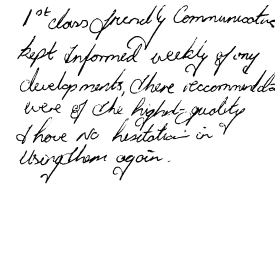 1st class friendly Communicatio
kept Informed weekly of any
developments, there reccommenda
were of the highest quality
I have No hesitation in
Using them again.